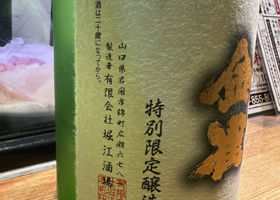 金雀
特別限定醸造
山口県岩国市錦町広瀬六七八
製造者 有限会社 堀江酒場
酒は二十歳になってから。